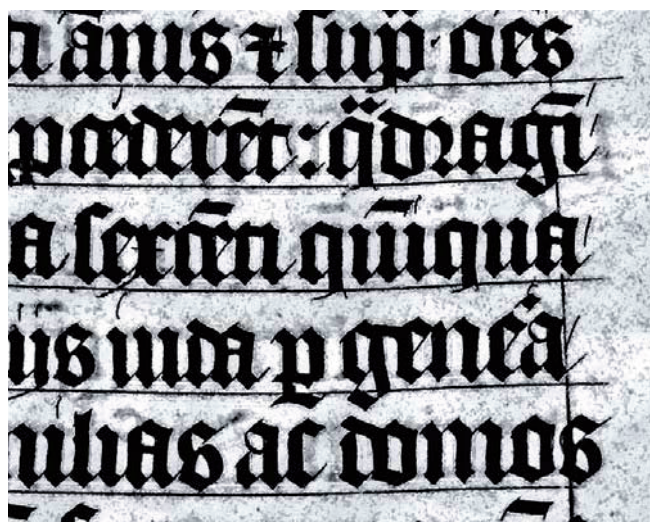 ti ānis ⁊ sup̈ oēs
ꝓcederēt : q̈dragī
a sexcēti qīnqua
iis iuda ꝑ geneᷓa
milias ac domos